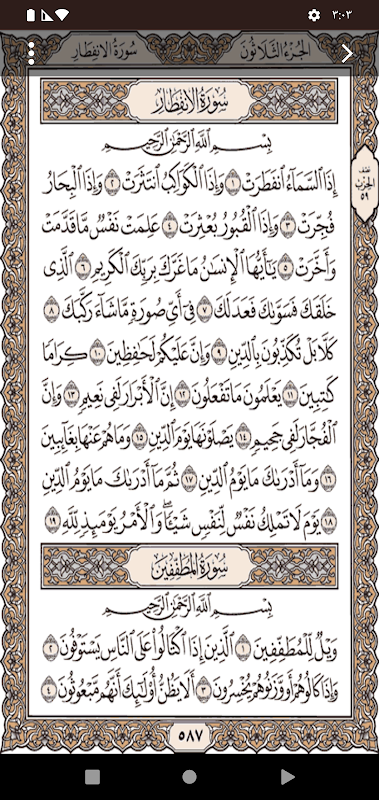 ٣:٠٣
الجُزْءُ الثَّلَاثُونَ سُورَةُ الانفِطَارِ
سُورَةُ الانفِطَارِ
بِسْمِ ٱللَّهِ ٱلرَّحْمَٰنِ ٱلرَّحِيمِ
إِذَا ٱلسَّمَآءُ ٱنفَطَرَتْ ١ وَإِذَا ٱلْكَوَاكِبُ ٱنتَثَرَتْ ٢ وَإِذَا ٱلْبِحَارُ
نصف الحزب ٥٩
فُجِّرَتْ ٣ وَإِذَا ٱلْقُبُورُ بُعْثِرَتْ ٤ عَلِمَتْ نَفْسٌ مَّا قَدَّمَتْ
وَأَخَّرَتْ ٥ يَٰٓأَيُّهَا ٱلْإِنسَٰنُ مَا غَرَّكَ بِرَبِّكَ ٱلْكَرِيمِ ٦ ٱلَّذِى
خَلَقَكَ فَسَوَّىٰكَ فَعَدَلَكَ ٧ فِىٓ أَىِّ صُورَةٍ مَّا شَآءَ رَكَّبَكَ ٨
كَلَّا بَلْ تُكَذِّبُونَ بِٱلدِّينِ ٩ وَإِنَّ عَلَيْكُمْ لَحَٰفِظِينَ ١٠ كِرَامًا
كَٰتِبِينَ ١١ يَعْلَمُونَ مَا تَفْعَلُونَ ١٢ إِنَّ ٱلْأَبْرَارَ لَفِى نَعِيمٍ ١٣ وَإِنَّ
ٱلْفُجَّارَ لَفِى جَحِيمٍ ١٤ يَصْلَوْنَهَا يَوْمَ ٱلدِّينِ ١٥ وَمَا هُمْ عَنْهَا بِغَآئِبِينَ
١٦ وَمَآ أَدْرَىٰكَ مَا يَوْمُ ٱلدِّينِ ١٧ ثُمَّ مَآ أَدْرَىٰكَ مَا يَوْمُ ٱلدِّينِ
١٨ يَوْمَ لَا تَمْلِكُ نَفْسٌ لِّنَفْسٍ شَيْـًٔا ۖ وَٱلْأَمْرُ يَوْمَئِذٍ لِّلَّهِ ١٩
سُورَةُ المُطَفِّفِينَ
بِسْمِ ٱللَّهِ ٱلرَّحْمَٰنِ ٱلرَّحِيمِ
وَيْلٌ لِّلْمُطَفِّفِينَ ١ ٱلَّذِينَ إِذَا ٱكْتَالُوا۟ عَلَى ٱلنَّاسِ يَسْتَوْفُونَ ٢
وَإِذَا كَالُوهُمْ أَو وَّزَنُوهُمْ يُخْسِرُونَ ٣ أَلَا يَظُنُّ أُو۟لَٰٓئِكَ أَنَّهُم مَّبْعُوثُونَ ٤
٥٨٧